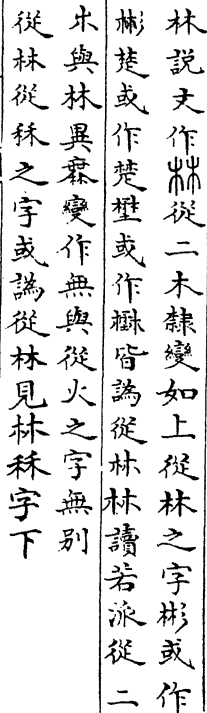 林說文作林從二木隸變如上從林之字彬或作
彬楚或作楚壄或作皆譌從𣏟𣏟讀若派從二
𣎳與林異變作無與從火之字無別
從林從秝之字或譌從𣏟見𣏟秝字下